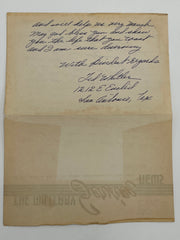 and will help me very much
May god bless you and show
you the life that you want
and I am sure deserving
With kindest regards
Ted Whitler
1212 E Euclid
San Antonio, Tex
NEWS
THE MILITARY